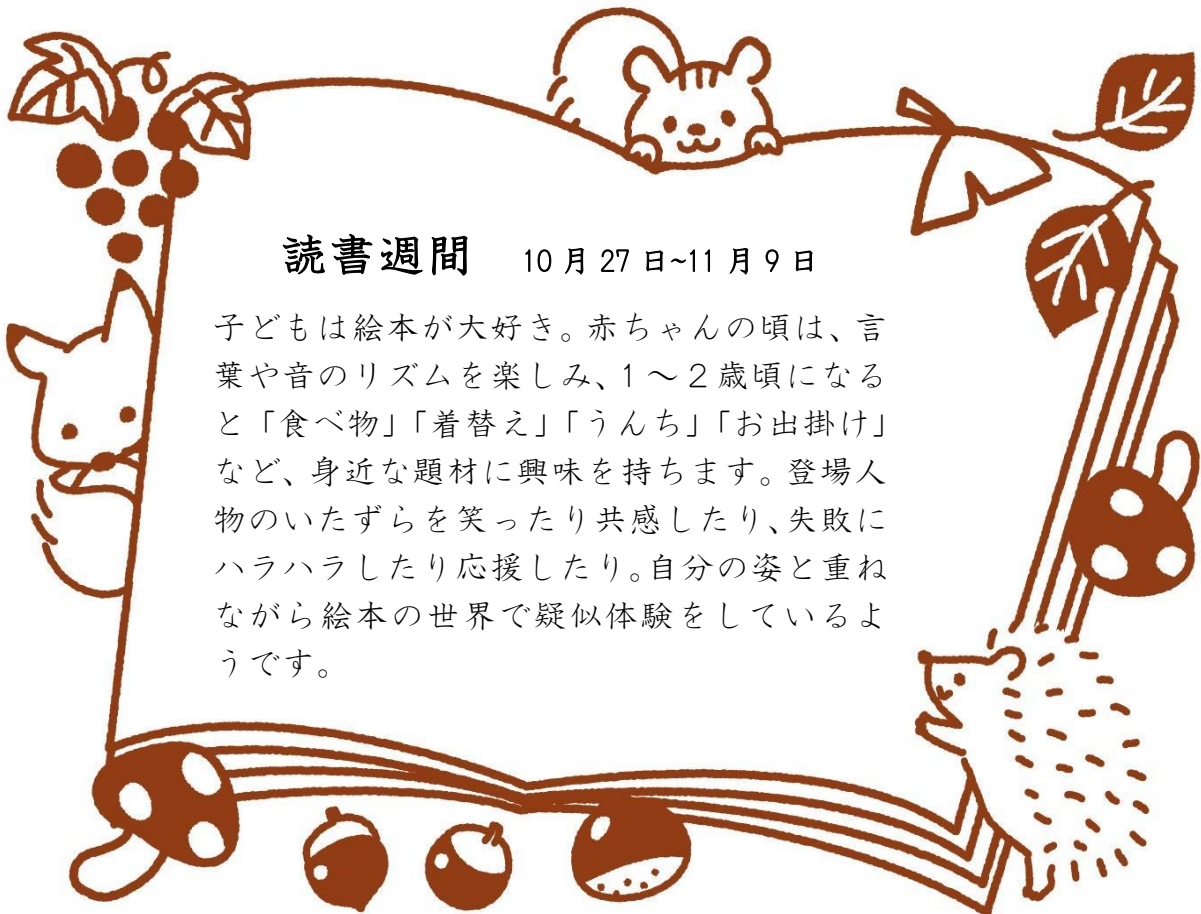 読書週間 10月27日~11月9日
子どもは絵本が大好き。赤ちゃんの頃は、言
葉や音のリズムを楽しみ、1～2歳頃になる
と「食べ物」「着替え」「うんち」「お出掛け」
など、身近な題材に興味を持ちます。登場人
物のいたずらを笑ったり共感したり、失敗に
ハラハラしたり応援したり。自分の姿と重ね
ながら絵本の世界で疑似体験をしているよ
うです。